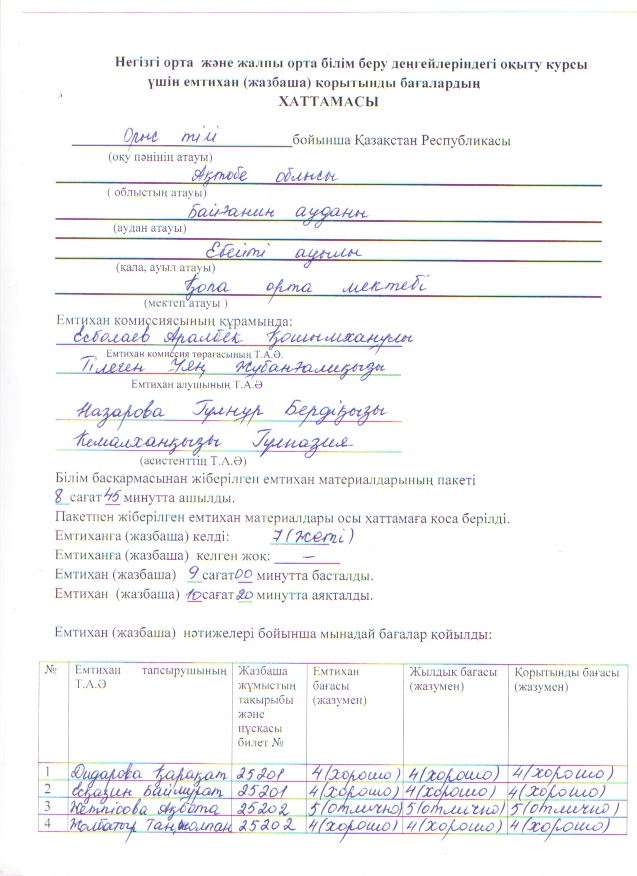 Негізгі орта және жалпы орта білім беру деңгейлеріндегі оқыту курсы
үшін емтихан (жазбаша) қорытынды бағалардың
ХАТТАМАСЫ
Орыс тілі бойынша Қазақстан Республикасы
(оқу пәнінің атауы)
Ақтөбе облысы
( облыстың атауы)
Байғанин ауданы
(аудан атауы)
Ебейті ауылы
(қала, ауыл атауы)
Қопа орта мектебі
(мектеп атауы )
Емтихан комиссиясының құрамында:
Есболаев Аралбек Қошымханулы
Емтихан комиссия төрағасының Т.А.Ә.
Тілеген Жубанғалиқызы
Емтихан алушының Т.А.Ә
Назарова Гулнур Бердіқызы
Кемалханқызы Гулназия
(асистенттің Т.А.Ә)
Білім басқармасынан жіберілген емтихан материалдарының пакеті
8 сағат 45 минутта ашылды.
Пакетпен жіберілген емтихан материалдары осы хаттамаға қоса берілді.
Емтиханға (жазбаша) келді: 7 (жеті)
Емтиханға (жазбаша) келген жоқ: —
Емтихан (жазбаша) 9 сағат 00 минутта басталды.
Емтихан (жазбаша) 10 сағат 20 минутта аяқталды.
Емтихан (жазбаша) нәтижелері бойынша мынадай бағалар қойылды:
№ Емтихан тапсырушының Т.А.Ә Жазбаша жұмыстың тақырыбы және нұсқасы билет № Емтихан бағасы (жазумен) Жылдық бағасы (жазумен) Қорытынды бағасы (жазумен)
1 Дидарова Қарақат 25201 4 (хорошо) 4 (хорошо) 4 (хорошо)
2 Есқазин Баймұрат 25201 4 (хорошо) 4 (хорошо) 4 (хорошо)
3 Жетпісова Ақбота 25202 5 (отлично) 5 (отлично) 5 (отлично)
4 Жолбатыр Таңшолпан 25202 4 (хорошо) 4 (хорошо) 4 (хорошо)